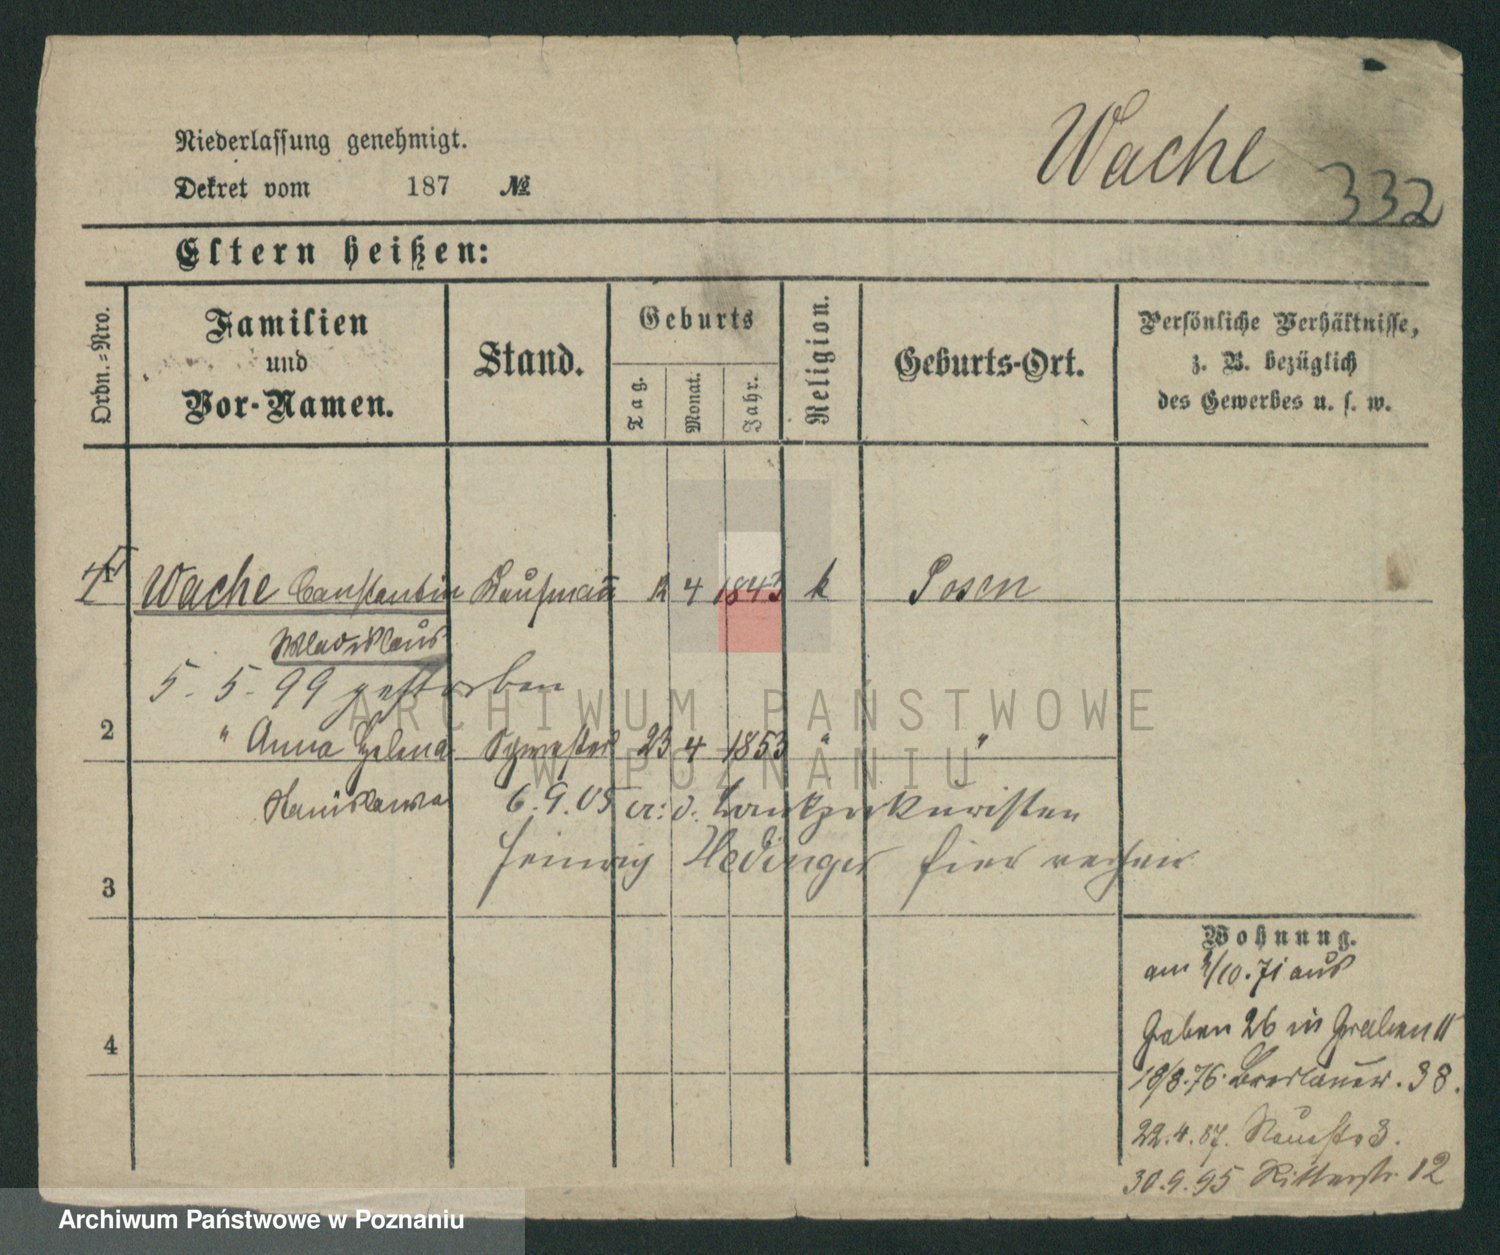 Niederlassung genehmigt.
Dekret vom 187 №
Wache
332
Eltern heißen:
Ordn.=Nro.
Familien
und
Vor-Namen.
Stand.
Geburts
Tag.
Monat.
Jahr.
Religion.
Geburts-Ort.
Persönliche Verhältnisse,
z. B. bezüglich
des Gewerbes u. s. w.
1 Wache Constantin Kaufmann 12 4 1843 k Posen
Wladislaus
5. 5. 99 gestorben
2 " Anna Helena Schwester 23 4 1853 " "
Stanislawa
6. 9. 05 d. Bankprokuristen
Hedinger hier
3
4
Wohnung.
am 1/10. 71 aus
Graben 26 in Graben 11
19/8. 76. Breslauer. 38.
22. 4. 87. Neuestr 3.
30. 9. 95 Ritterstr. 12
ARCHIWUM PAŃSTWOWE
W POZNANIU
Archiwum Państwowe w Poznaniu